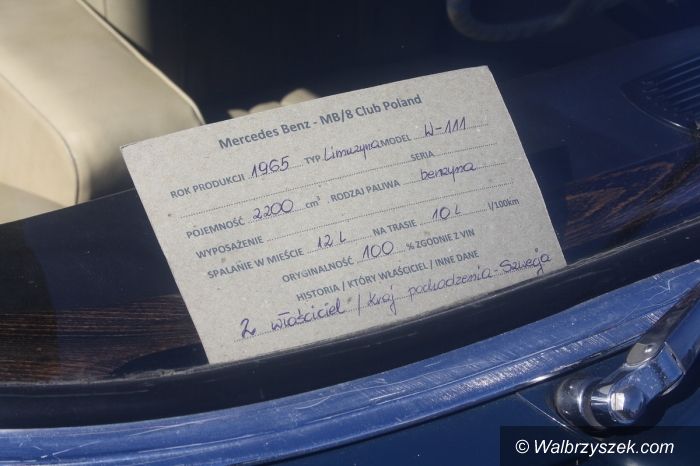 Mercedes Benz - MB/8 Club Poland
ROK PRODUKCJI 1965 TYP Limuzyna MODEL W-111
SERIA
POJEMNOŚĆ 2200 cm³ RODZAJ PALIWA benzyna
WYPOSAŻENIE
SPALANIE W MIEŚCIE 12 L NA TRASIE 10 L l/100km
ORYGINALNOŚĆ 100 % ZGODNIE Z VIN
HISTORIA / KTÓRY WŁAŚCICIEL / INNE DANE
2 właściciel / kraj pochodzenia - Szwecja
© Walbrzyszek.com